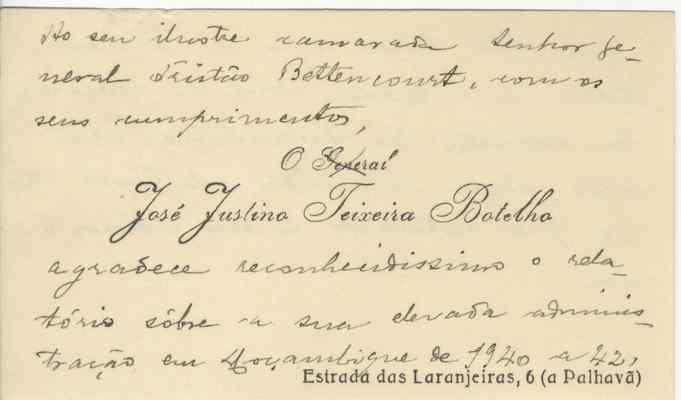 Ao seu ilustre camarada Senhor ge-
neral Tristão Bettencourt, com os
seus cumprimentos,
O General
José Justino Teixeira Botelho
agradece reconhecidissimo o rela-
tório sôbre a sua elevada adminis-
tração em Moçambique de 1940 a 42,
Estrada das Laranjeiras, 6 (a Palhavã)